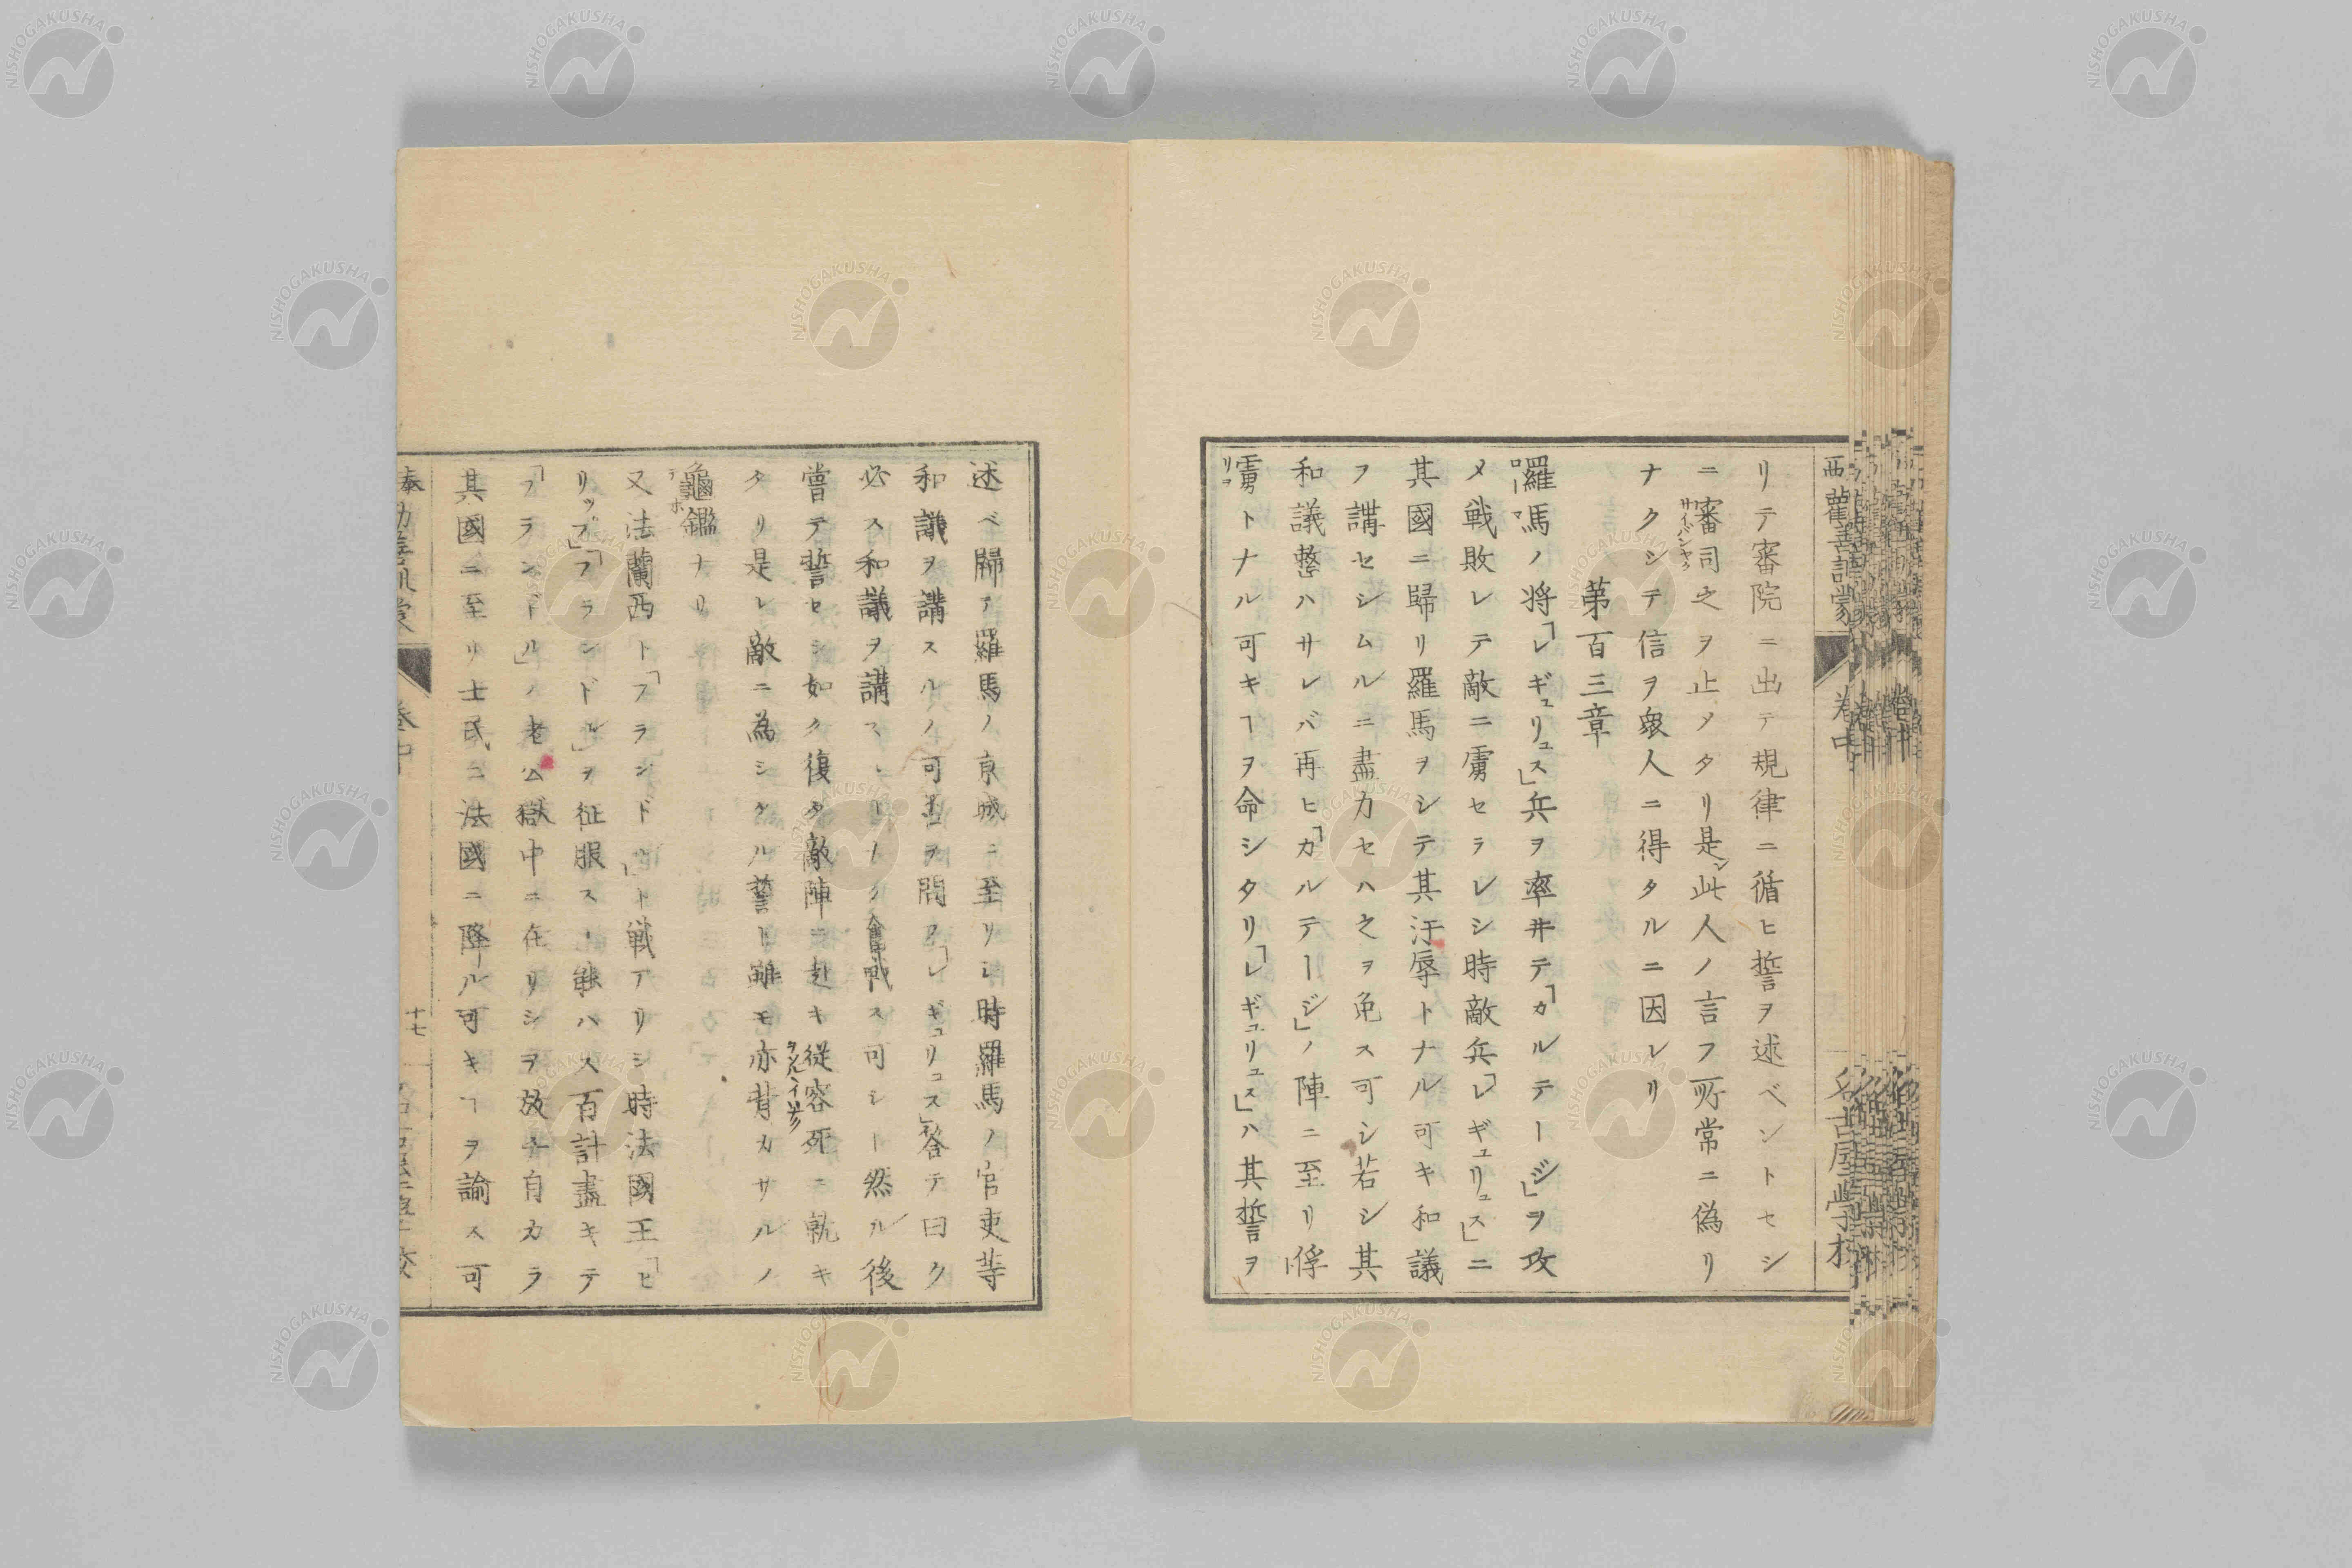 リテ審院ニ出テ規律ニ循ヒ誓ヲ述ベントセシ
ニ審司之ヲ止メタリ是レ此人ノ言フ所常ニ偽リ
ナクシテ信ヲ衆人ニ得タルニ因レリ
第百三章
羅馬ノ将「レギュリュス」兵ヲ率井テ「カルテージ」ヲ攻
メ戦敗レテ敵ニ虜セラレシ時敵兵「レギュリュス」ニ
其國ニ歸リ羅馬ヲシテ其汙辱トナル可キ和議
ヲ講セシムルニ盡力セハ之ヲ免ス可シ若シ其
和議整ハサレバ再ヒ「カルテージ」ノ陣ニ至リ俘
虜トナル可キヿヲ命シタリ「レギュリュス」ハ其誓ヲ
述ベ歸テ羅馬ノ京城ニ至リシ時羅馬ノ官吏等
和議ヲ講スルノ可否ヲ問フ「レギュリュス」答テ曰ク
必ス和議ヲ講スルヿナク奮戦ス可シト然ル後
嘗テ誓セシ如ク復タ敵陣ニ赴キ従容死ニ就キ
タリ是レ敵ニ為シタル誓ト雖モ亦背カサルノ
龜鑑ナリ
又法蘭西ト「フランドル」ト戦アリシ時法國王「ヒ
リップ」「フランドル」ヲ征服スルヿ能ハス百計盡キテ
「フランドル」ノ老公獄中ニ在リシヲ放チ自カラ
其國ニ至リ士民ニ法國ニ降ル可キヿヲ諭ス可
西洋勸善訓蒙
卷中
名古屋學校
卷中
十七